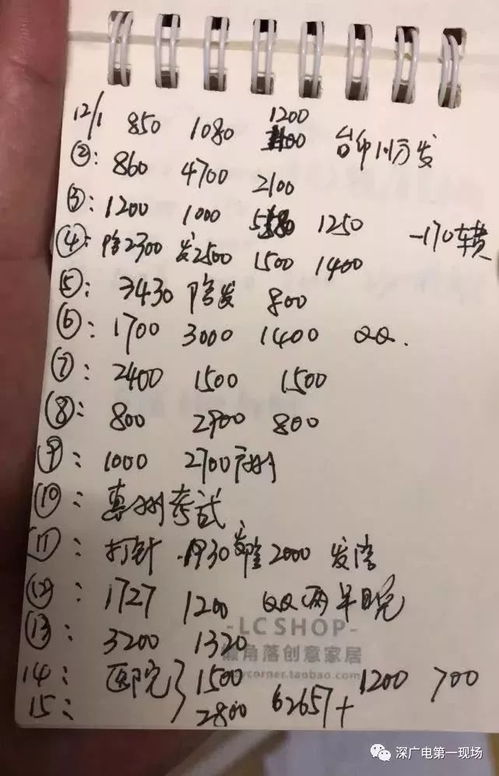 12/1 850 1080 1200 台州方发
②: 860 4700 2100
③: 1200 1000 1250 -170转
④: 陪2300 发2500 1500 1400
⑤: 3430 陪发 800
⑥: 1700 3000 1400 QQ.
⑦: 2400 1500 1500
⑧: 800 2900 800
⑨: 1000 2700
⑩: 惠州考试
⑪: 打针 1930 2000 发
⑫: 1727 1200 QQ两年
⑬: 3200 1320
- LC SHOP -
角落创意家居
14: 医院 1500 1200 700
corner.taobao.com
15: 2800 62657+
深广电第一现场